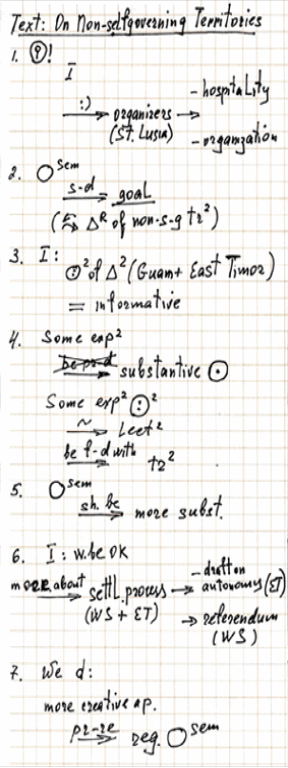 Text: On Non-selfgoverning Territories
1. !
I
:) organizers - hospitaLity
(St. Lusia) - organization
2. sem
s-d goal
( Δ^R of non-s-g tr²)
3. I:
² of Δ² (Guam + East Timor)
= informative
4. Some exp²
substantive
Some exp² ²
~ Lect²
be f-d with tr²
5. sem
sh. be more subst.
6. I: w.be OK
more about settl. process - draft on autonomy (ET)
(WS + ET) → referendum (WS)
7. We d:
more creative ap.
pr-re reg. sem